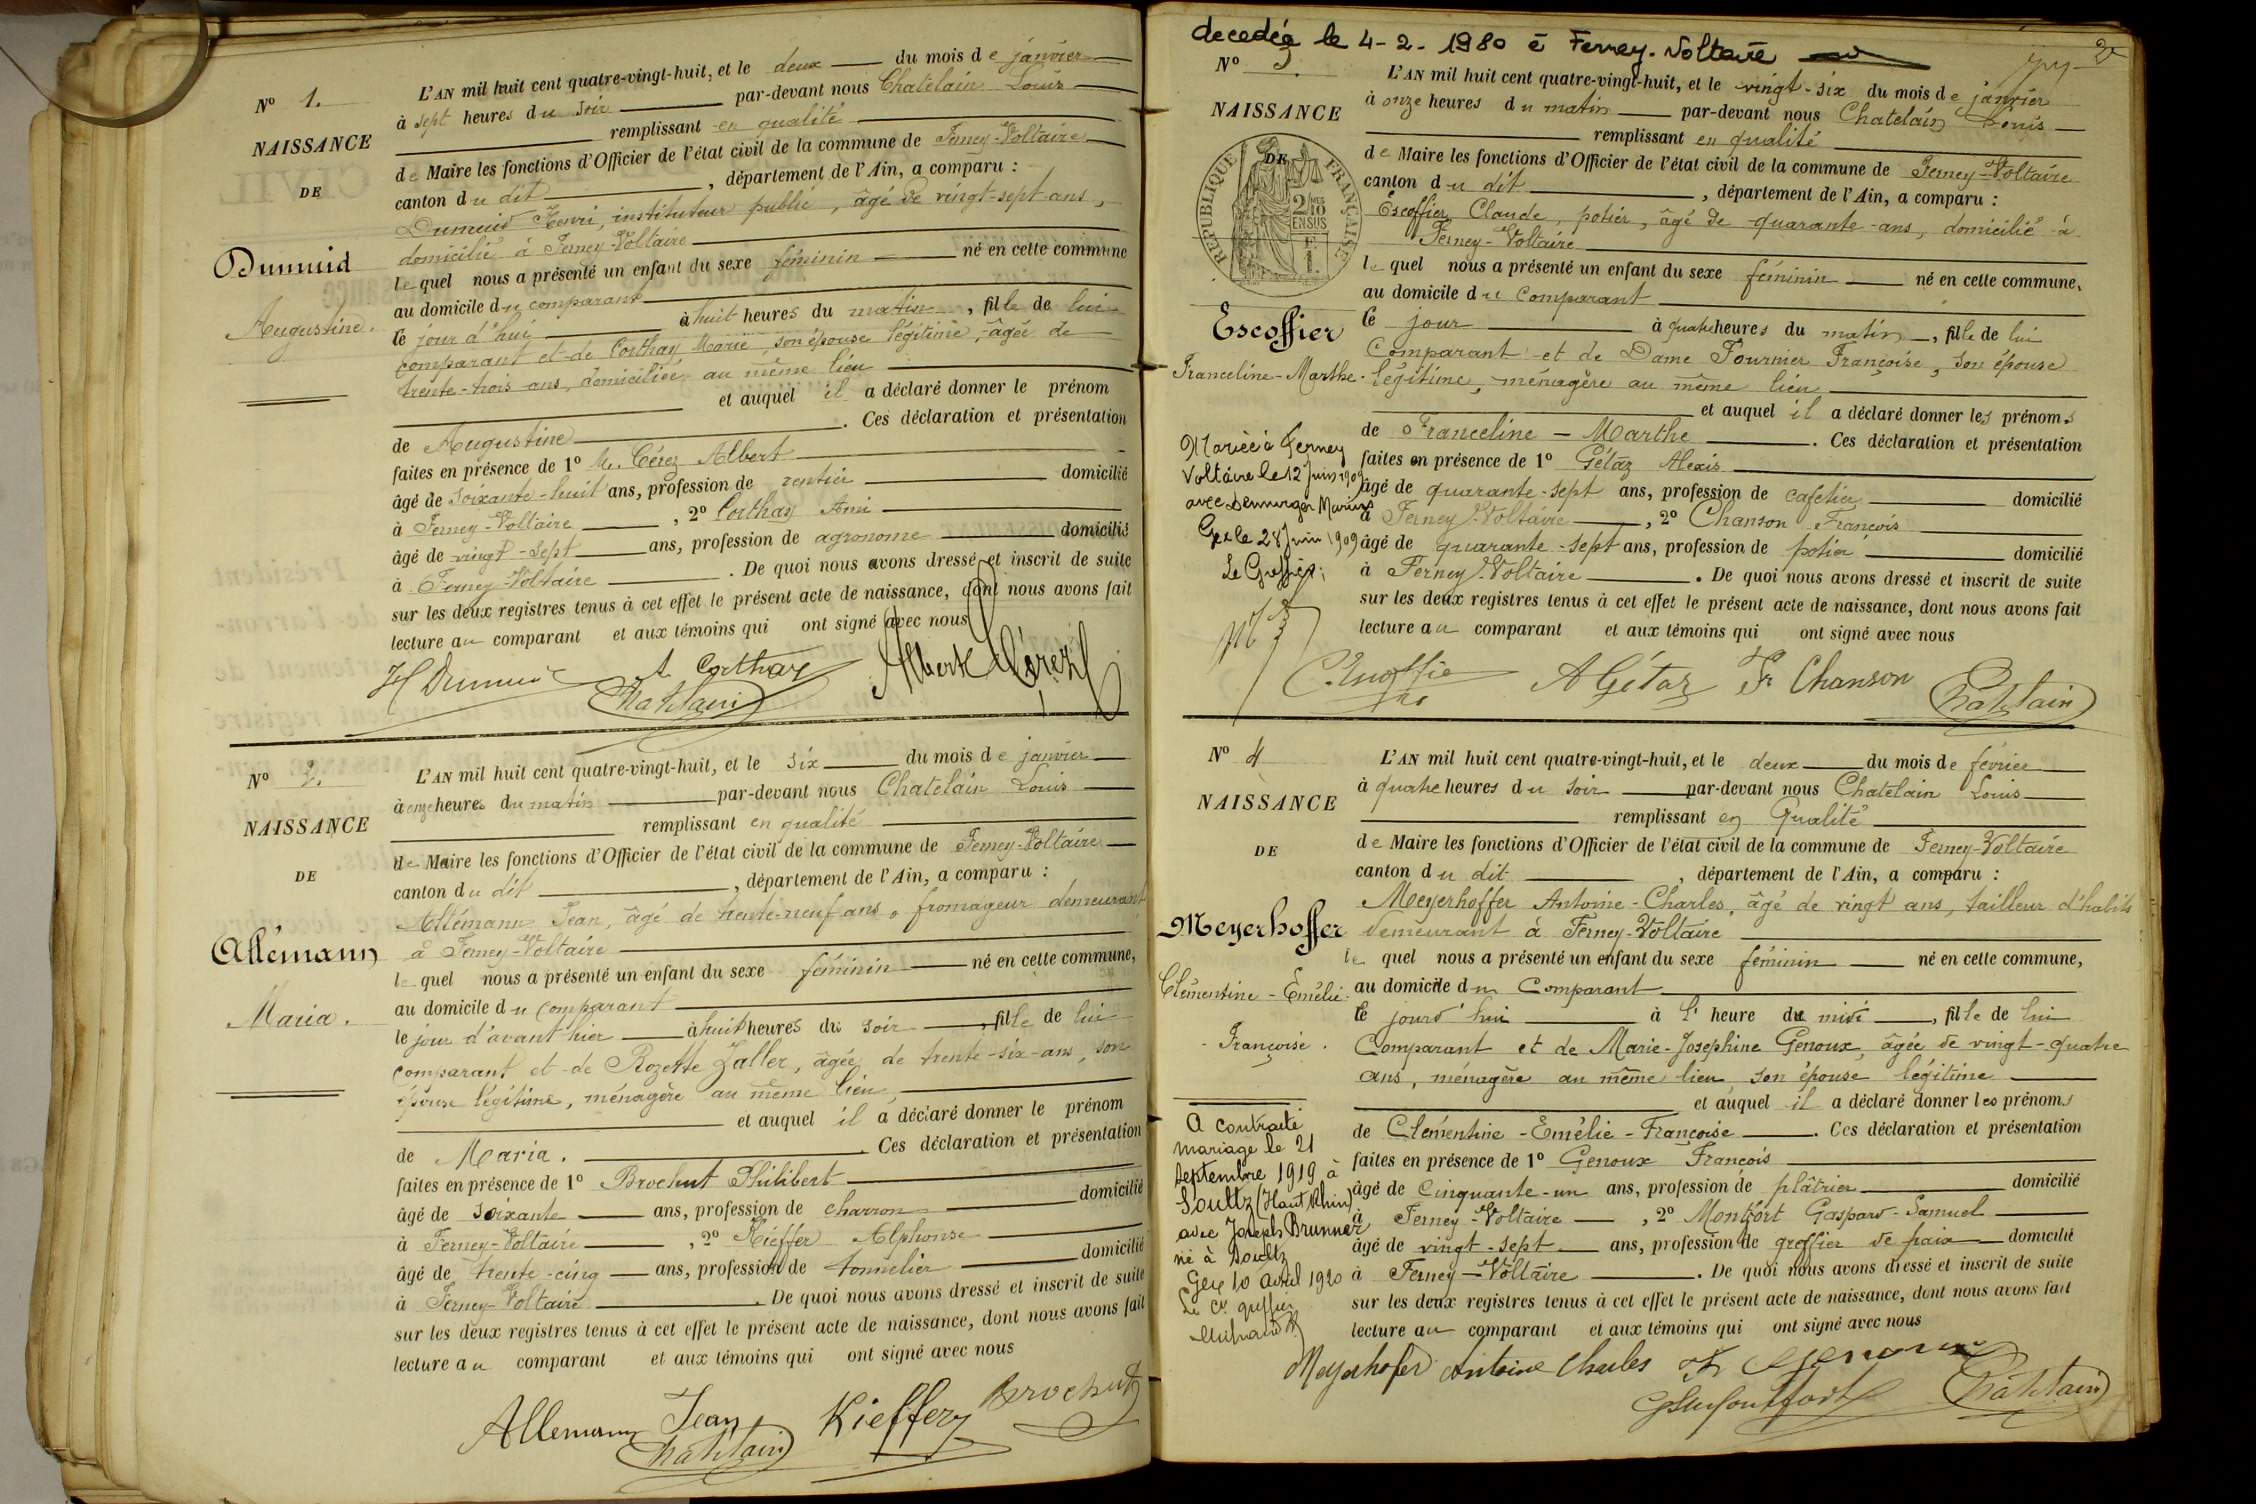 N° 1.
NAISSANCE
DE
Dumuid
Augustine.
L'AN mil huit cent quatre-vingt-huit, et le deux du mois de janvier
à sept heures du soir par-devant nous Chatelain Louis
remplissant en qualité
de Maire les fonctions d'Officier de l'état civil de la commune de Ferney-Voltaire
canton du dit, département de l'Ain, a comparu :
Dumuid Henri, instituteur public, âgé de vingt-sept-ans,
domicilié à Ferney-Voltaire
lequel nous a présenté un enfant du sexe féminin né en cette commune
au domicile du comparant
le jour d'hui à huit heures du matin, fille de lui
comparant et de Corthay Marie, son épouse légitime, âgée de
trente-trois ans, domiciliée au même lieu
et auquel il a déclaré donner le prénom
de Augustine. Ces déclaration et présentation
faites en présence de 1° Mr. Cérez Albert
âgé de soixante-huit ans, profession de rentier domicilié
à Ferney-Voltaire, 2° Corthay Ami
âgé de vingt-sept ans, profession de agronome domicilié
à Ferney-Voltaire. De quoi nous avons dressé et inscrit de suite
sur les deux registres tenus à cet effet le présent acte de naissance, dont nous avons fait
lecture au comparant et aux témoins qui ont signé avec nous
H Dumuid A Corthay Albert Cérez
Chatelain
N° 2.
NAISSANCE
DE
Allémann
Maria.
L'AN mil huit cent quatre-vingt-huit, et le six du mois de janvier
à onze heures du matin par-devant nous Chatelain Louis
remplissant en qualité
de Maire les fonctions d'Officier de l'état civil de la commune de Ferney-Voltaire
canton du dit, département de l'Ain, a comparu :
Allémann Jean, âgé de trente-neuf ans, fromageur demeurant
à Ferney-Voltaire
lequel nous a présenté un enfant du sexe féminin né en cette commune,
au domicile du comparant
le jour d'avant hier à huit heures du soir, fille de lui
comparant et de Rozette Zaller, âgée de trente-six-ans, son
épouse légitime, ménagère au même lieu,
et auquel il a déclaré donner le prénom
de Maria. Ces déclaration et présentation
faites en présence de 1° Brochut Philibert
âgé de soixante ans, profession de charron domicilié
à Ferney-Voltaire, 2° Kieffer Alphonse
âgé de trente-cinq ans, profession de tonnelier domicilié
à Ferney-Voltaire. De quoi nous avons dressé et inscrit de suite
sur les deux registres tenus à cet effet le présent acte de naissance, dont nous avons fait
lecture au comparant et aux témoins qui ont signé avec nous
Allemann Jean Kieffer Brochut
Chatelain
decedée le 4-2-1980 à Ferney-Voltaire
2
N° 3.
NAISSANCE
DE
RÉPUBLIQUE FRANÇAISE
2/10 EN SUS
Escoffier
Franceline-Marthe.
Mariée à Ferney
Voltaire le 12 Juin 1909
avec Demurger Marius
Gex le 28 Juin 1909
Le Greffier;
L'AN mil huit cent quatre-vingt-huit, et le vingt-six du mois de janvier
à onze heures du matin par-devant nous Chatelain Louis
remplissant en qualité
de Maire les fonctions d'Officier de l'état civil de la commune de Ferney-Voltaire
canton du dit, département de l'Ain, a comparu :
Escoffier Claude, potier, âgé de quarante-ans, domicilié à
Ferney-Voltaire
lequel nous a présenté un enfant du sexe féminin né en cette commune,
au domicile du comparant
le jour à quatre heures du matin, fille de lui
Comparant et de Dame Fournier Françoise, son épouse
légitime, ménagère au même lieu
et auquel il a déclaré donner les prénoms
de Franceline-Marthe. Ces déclaration et présentation
faites en présence de 1° Gétaz Alexis
âgé de quarante-sept ans, profession de cafetier domicilié
à Ferney-Voltaire, 2° Chanson François
âgé de quarante-sept ans, profession de potier domicilié
à Ferney-Voltaire. De quoi nous avons dressé et inscrit de suite
sur les deux registres tenus à cet effet le présent acte de naissance, dont nous avons fait
lecture au comparant et aux témoins qui ont signé avec nous
A Gétaz Fr Chanson Chatelain
N° 4
NAISSANCE
DE
Meyerhoffer
Clémentine-Emélie-
Françoise.
A contracté
mariage le 21
septembre 1919 à
Soultz (Haut Rhin)
avec Joseph Brunner
né à Soultz
Gex 10 avril 1920
Le Cs greffier
L'AN mil huit cent quatre-vingt-huit, et le deux du mois de février
à quatre heures du soir par-devant nous Chatelain Louis
remplissant en Qualité
de Maire les fonctions d'Officier de l'état civil de la commune de Ferney-Voltaire
canton du dit, département de l'Ain, a comparu :
Meyerhoffer Antoine-Charles, âgé de vingt ans, tailleur d'habits
demeurant à Ferney-Voltaire
lequel nous a présenté un enfant du sexe féminin né en cette commune,
au domicile du Comparant
le jourd'hui à l'heure de midi, fille de lui
Comparant et de Marie-Josephine Genoux, âgée de vingt-quatre
ans, ménagère au même lieu son épouse légitime
et auquel il a déclaré donner les prénoms
de Clémentine-Emélie-Françoise. Ces déclaration et présentation
faites en présence de 1° Genoux François
âgé de Cinquante-un ans, profession de plâtrier domicilié
à Ferney-Voltaire, 2° Montfort Gaspard-Samuel
âgé de vingt-sept ans, profession de greffier de paix domicilié
à Ferney-Voltaire. De quoi nous avons dressé et inscrit de suite
sur les deux registres tenus à cet effet le présent acte de naissance, dont nous avons fait
lecture au comparant et aux témoins qui ont signé avec nous
Meyerhofer Antoine Charles Fr Genoux
GSMontfort Chatelain